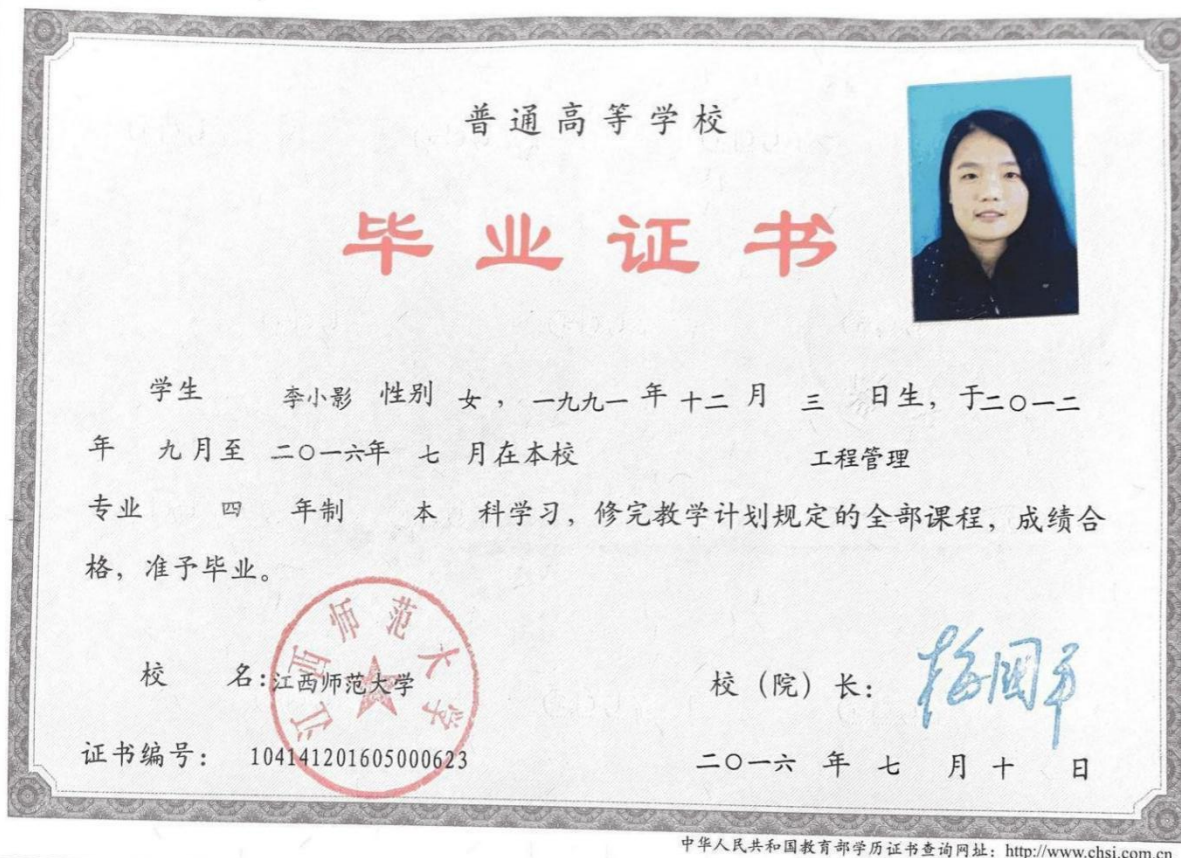 普通高等学校
毕业证书
学生 李小影 性别 女，一九九一 年 十二 月 三 日生，于二〇一二
年 九月至 二〇一六年 七 月在本校 工程管理
专业 四 年制 本 科学习，修完教学计划规定的全部课程，成绩合
格，准予毕业。
江西师范大学
校 名：江西师范大学
校（院）长：
证书编号： 104141201605000623
二〇一六 年 七 月 十 日
中华人民共和国教育部学历证书查询网址：http://www.chsi.com.cn